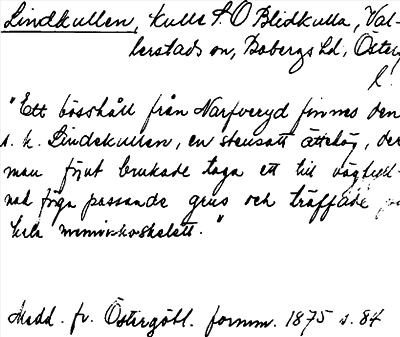 Lindkullen, kulle S.O Blidkulla, Val-
lerstads sn, Bobergs hd, Österg
l.
"Ett bösshåll från Narfveryd finnes den
s. k. Lindskullen, en stensatt ättehög, der
man förut brukade taga ett till vägfyll-
nad föga passande grus och träffade på
hela menniskoskelett."
Medd. fr. Östergötl. fornm. 1875 s. 84